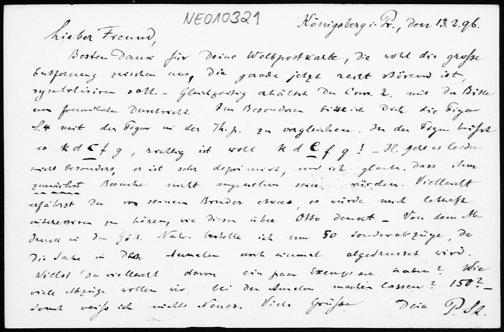 NE010321
Königsberg i. Pr., den 13.2.96.
Lieber Freund,
Besten Dank für Deine Weltpostkarte, die wohl die große
Entfernung zwischen uns, die gerade jetzt recht störend ist,
symbolisiren soll. – Gleichzeitig erhältst Du Corr. 2. mit der Bitte
um freundliche Durchsicht. Im Besonderen bitte ich Dich die Figur
S.4 mit der Figur in der Th.p. zu vergleichen. In der Figur heißt
es k d C f g, richtig ist wohl k d C f g! – H. geht es leider
nicht besonders, er ist sehr deprimirt, und ich glaube, dass ihm
zunächst Besuche nicht angenehm sein würden. Vielleicht
erfährst Du von seinem Bruder etwas, es würde mich lebhaft
interessiren zu hören, wie dieser über Otto denkt. – Von dem Ab
druck in den Gött. Nachr. bestelle ich nun 50 Sonderabzüge, da
die Sache in den Annalen noch einmal abgedruckt wird.
Willst Du vielleicht davon ein paar Exemplare haben? Wie
viele Abzüge wollen wir bei den Annalen machen lassen? 150? –
Sonst weiß ich nichts Neues. Viele Grüße Dein P. St.